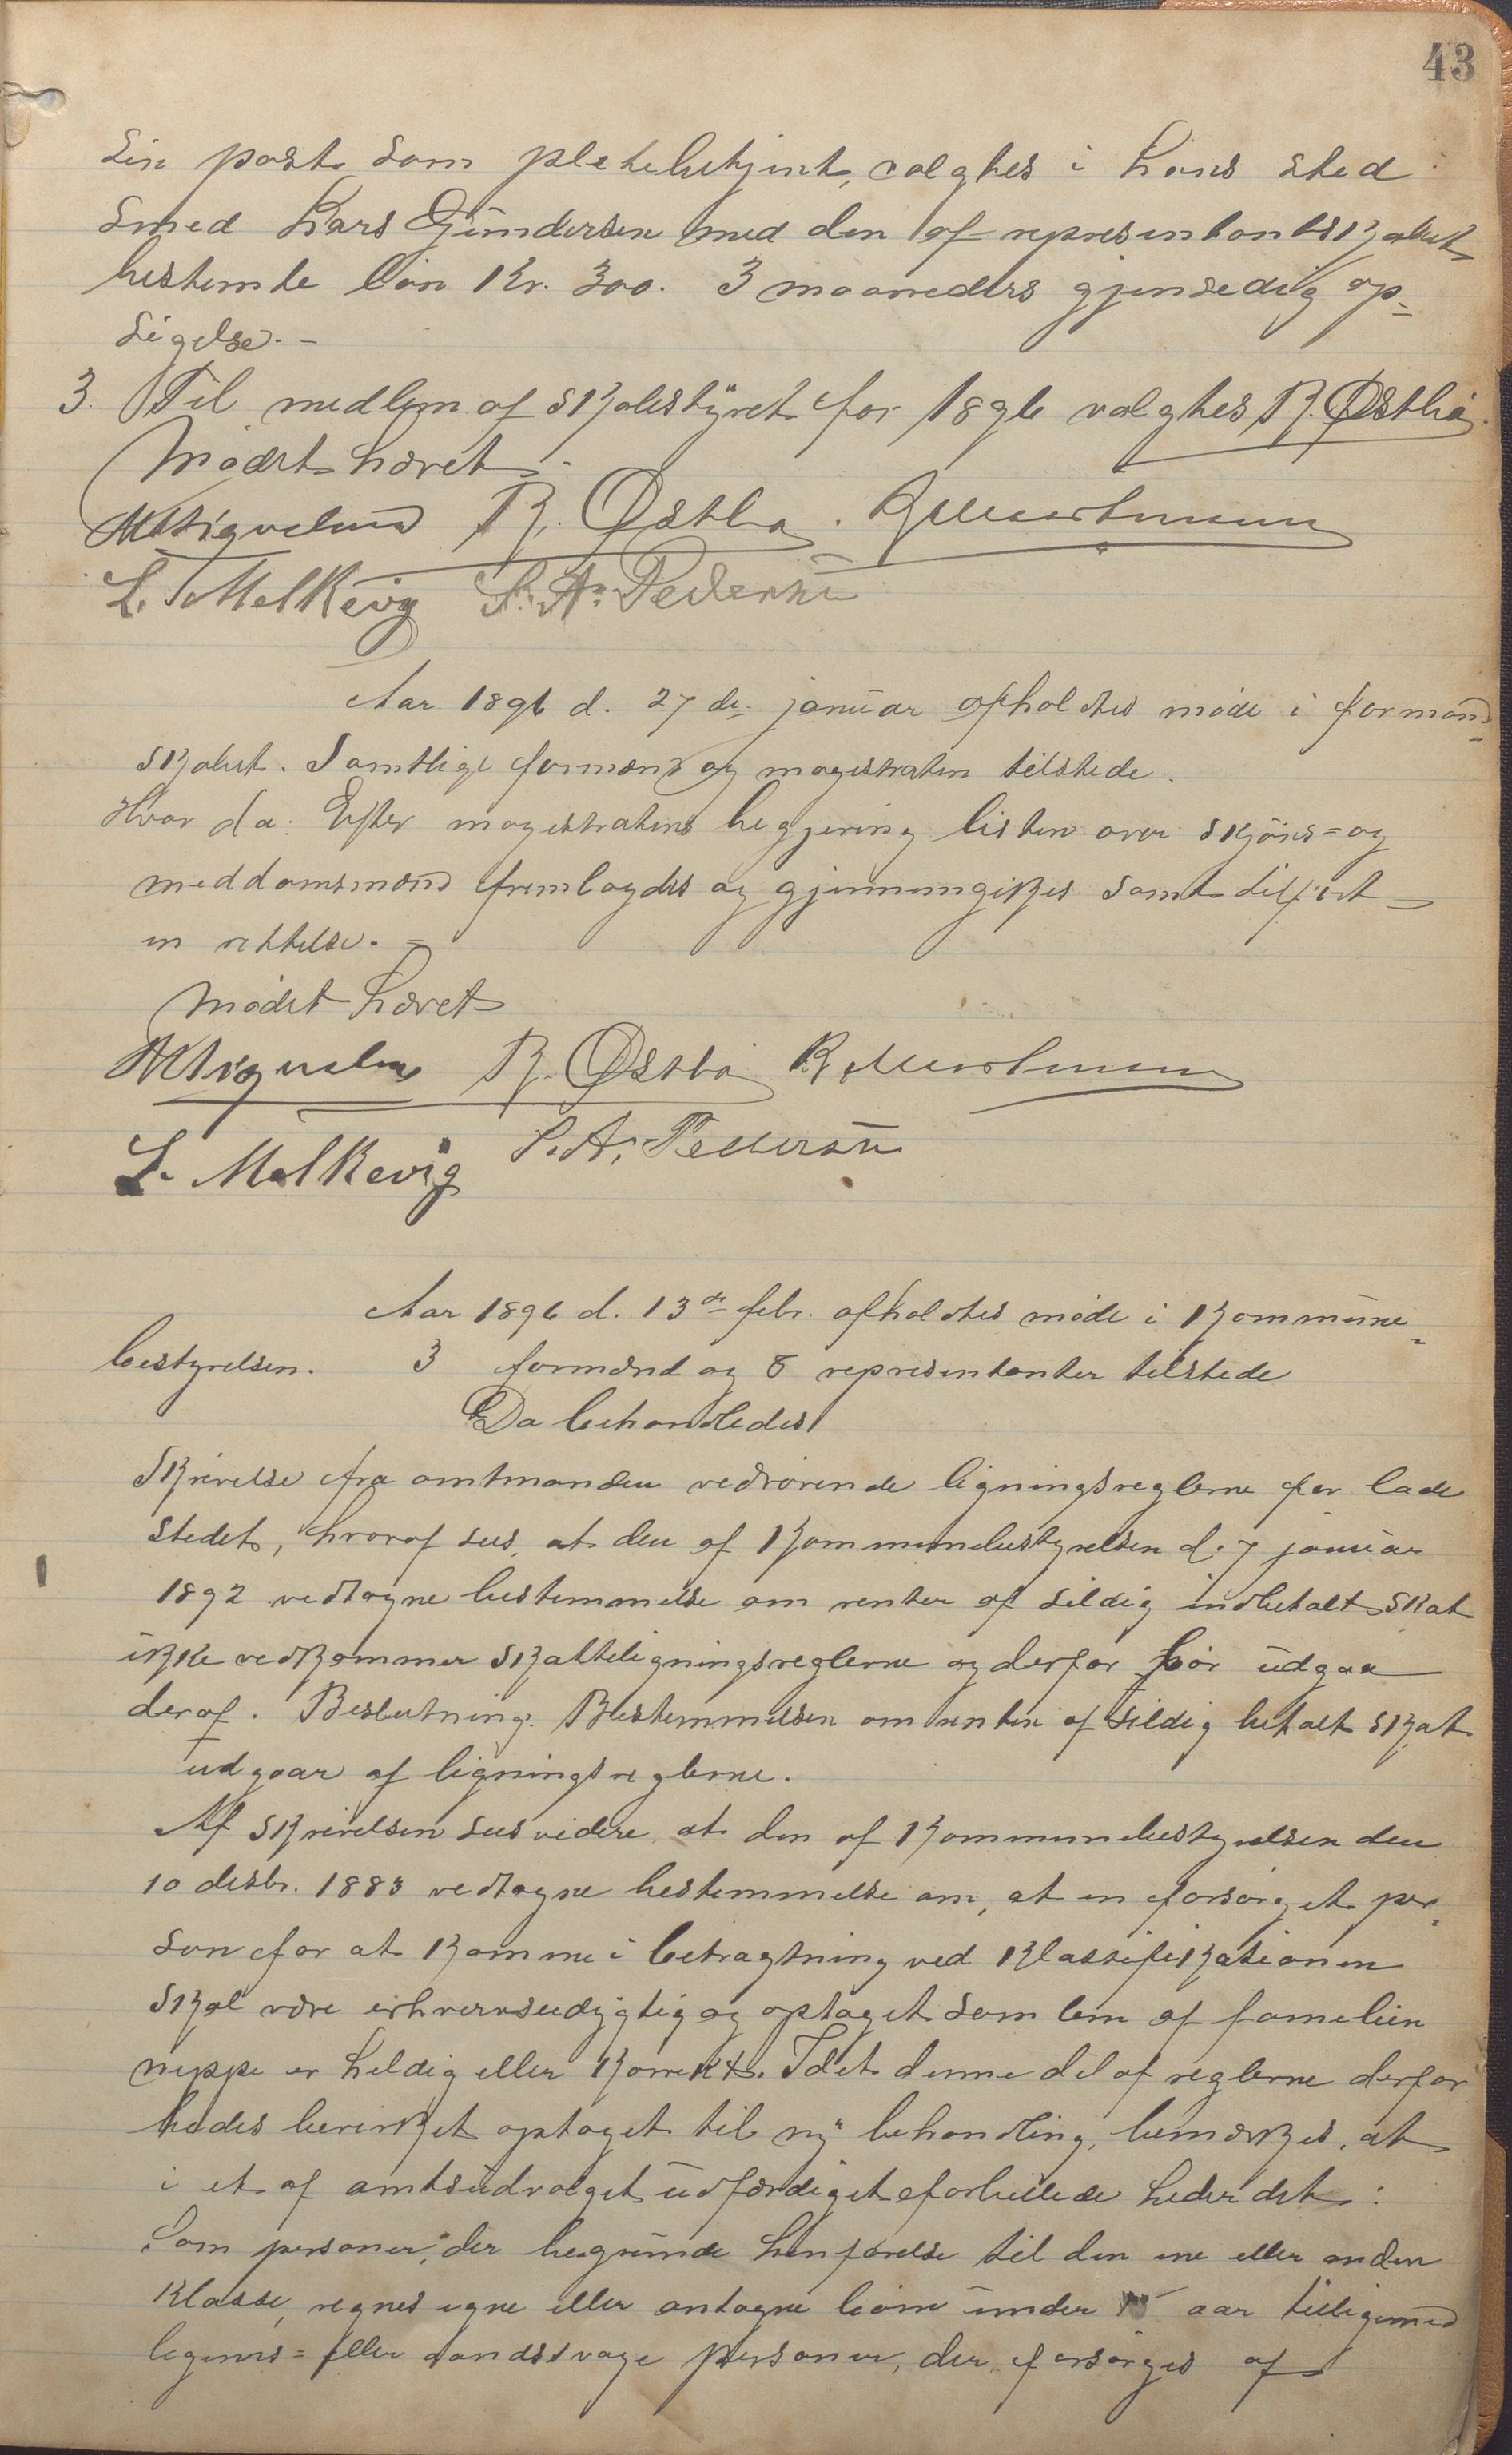 43
sin post som pletebetjent, valgtes i hans sted
smed Lars Gundersen med den af representantskabet
bestemte løn Kr. 300. 3 maaneders gjensedig op=
sigelse. -
3. Til medlem af skolestyret for 1896 valgtes R. Østbø.
Mødet hævet.
R. Østbø.
L. Melkevig S. A. Pedersen
Aar 1896 d. 27de januar afholdtes møde i formand=
skabet. Samtlige formænd og magistraten tilstede.
Hvor da: Efter magistratens begjæring listen over skjøns= og
meddomsmænd fremlagdes og gjennemgikkes samt tilført
en rettelse. -
Mødet hævet
R. Østbø
L. Melkevig S. A. Pedersen
Aar 1896 d. 13de febr. afholdtes møde i Kommune=
bestyrelsen. 3 formænd og 8 representanter tilstede
Da behandledes
Skrivelse fra amtmanden vedrørende ligningsreglerne for lade
stedet, hvoraf sees, at den af Kommunebestyrelsen d. 7 januar
1892 vedtagne bestemmelse om renter af sildig indbetalt skat
ikke vedkommer skatteligningsreglerne og derfor bør udgaa
deraf. Beslutning: Bestemmelsen om renten af sildig betalt skat
udgaar af ligningsreglerne.
Af skrivelsen sees videre at den af Kommunebestyrelsen den
10 desbr. 1883 vedtagne bestemmelse om, at en forsørget per=
son for at komme i betragtning ved Klassifikationen
skal være erhvervsudygtig og optaget som lem af familien
neppe er heldig eller korrekt. Idet denne del af reglerne derfor
bedes bevirket optaget til ny behandling, bemærkes, at
i et af amtsudvalget udfærdiget forbillede heder det:
Som personer, der begrunde henførelse til den ene eller anden
Klasse, regnes egne eller antagne børn under 15 aar tilligemed
legems= eller aandssvage personer, der forsørges af